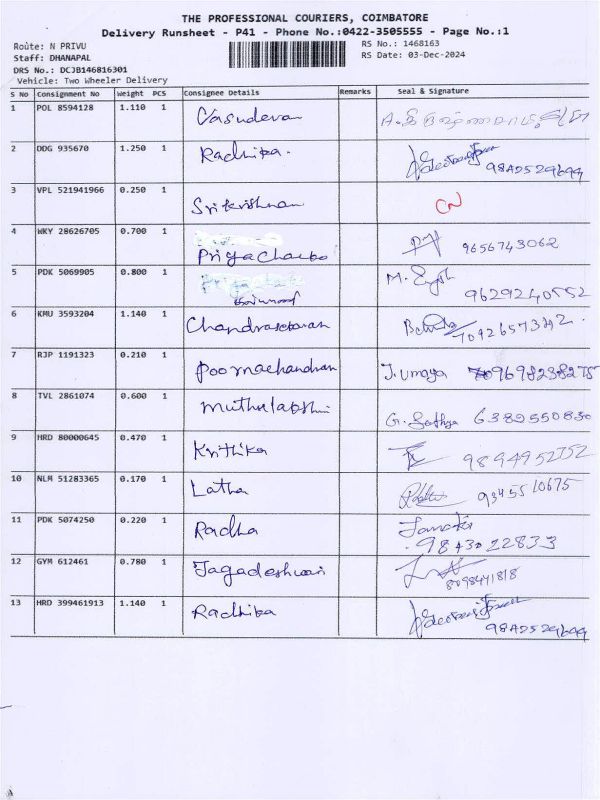 THE PROFESSIONAL COURIERS, COIMBATORE
Delivery Runsheet - P41 - Phone No.:0422-3505555 - Page No.:1
Route: N PRIVU
RS No.: 1468163
Staff: DHANAPAL
RS Date: 03-Dec-2024
DRS No.: DCJB146816301
Vehicle: Two Wheeler Delivery
S No Consignment No Weight PCS Consignee Details Remarks Seal & Signature
1 POL 8594128 1.110 1 Vasudevan
2 DDG 935670 1.250 1 Radhika. 9842529699
3 VPL 521941966 0.250 1 Srikrishnan CN
4 WKY 28626705 0.700 1 9656743062
5 PDK 5069905 0.800 1 M.
6 KMU 3593204 1.140 1 Chandrasekaran
7 RJP 1191323 0.210 1 Poornachandran J. Umaya
8 TVL 2861074 0.600 1 Muthulakshmi G. Sathya 6389550830
9 HRD 80000645 0.470 1 Krithika
10 NLM 51283365 0.170 1 Latha 9345510675
11 PDK 5074250 0.220 1 Radha Janaki
9843022833
12 GYM 612461 0.780 1 Jagadeshwari
8098441818
13 HRD 399461913 1.140 1 Radhika
9842529699